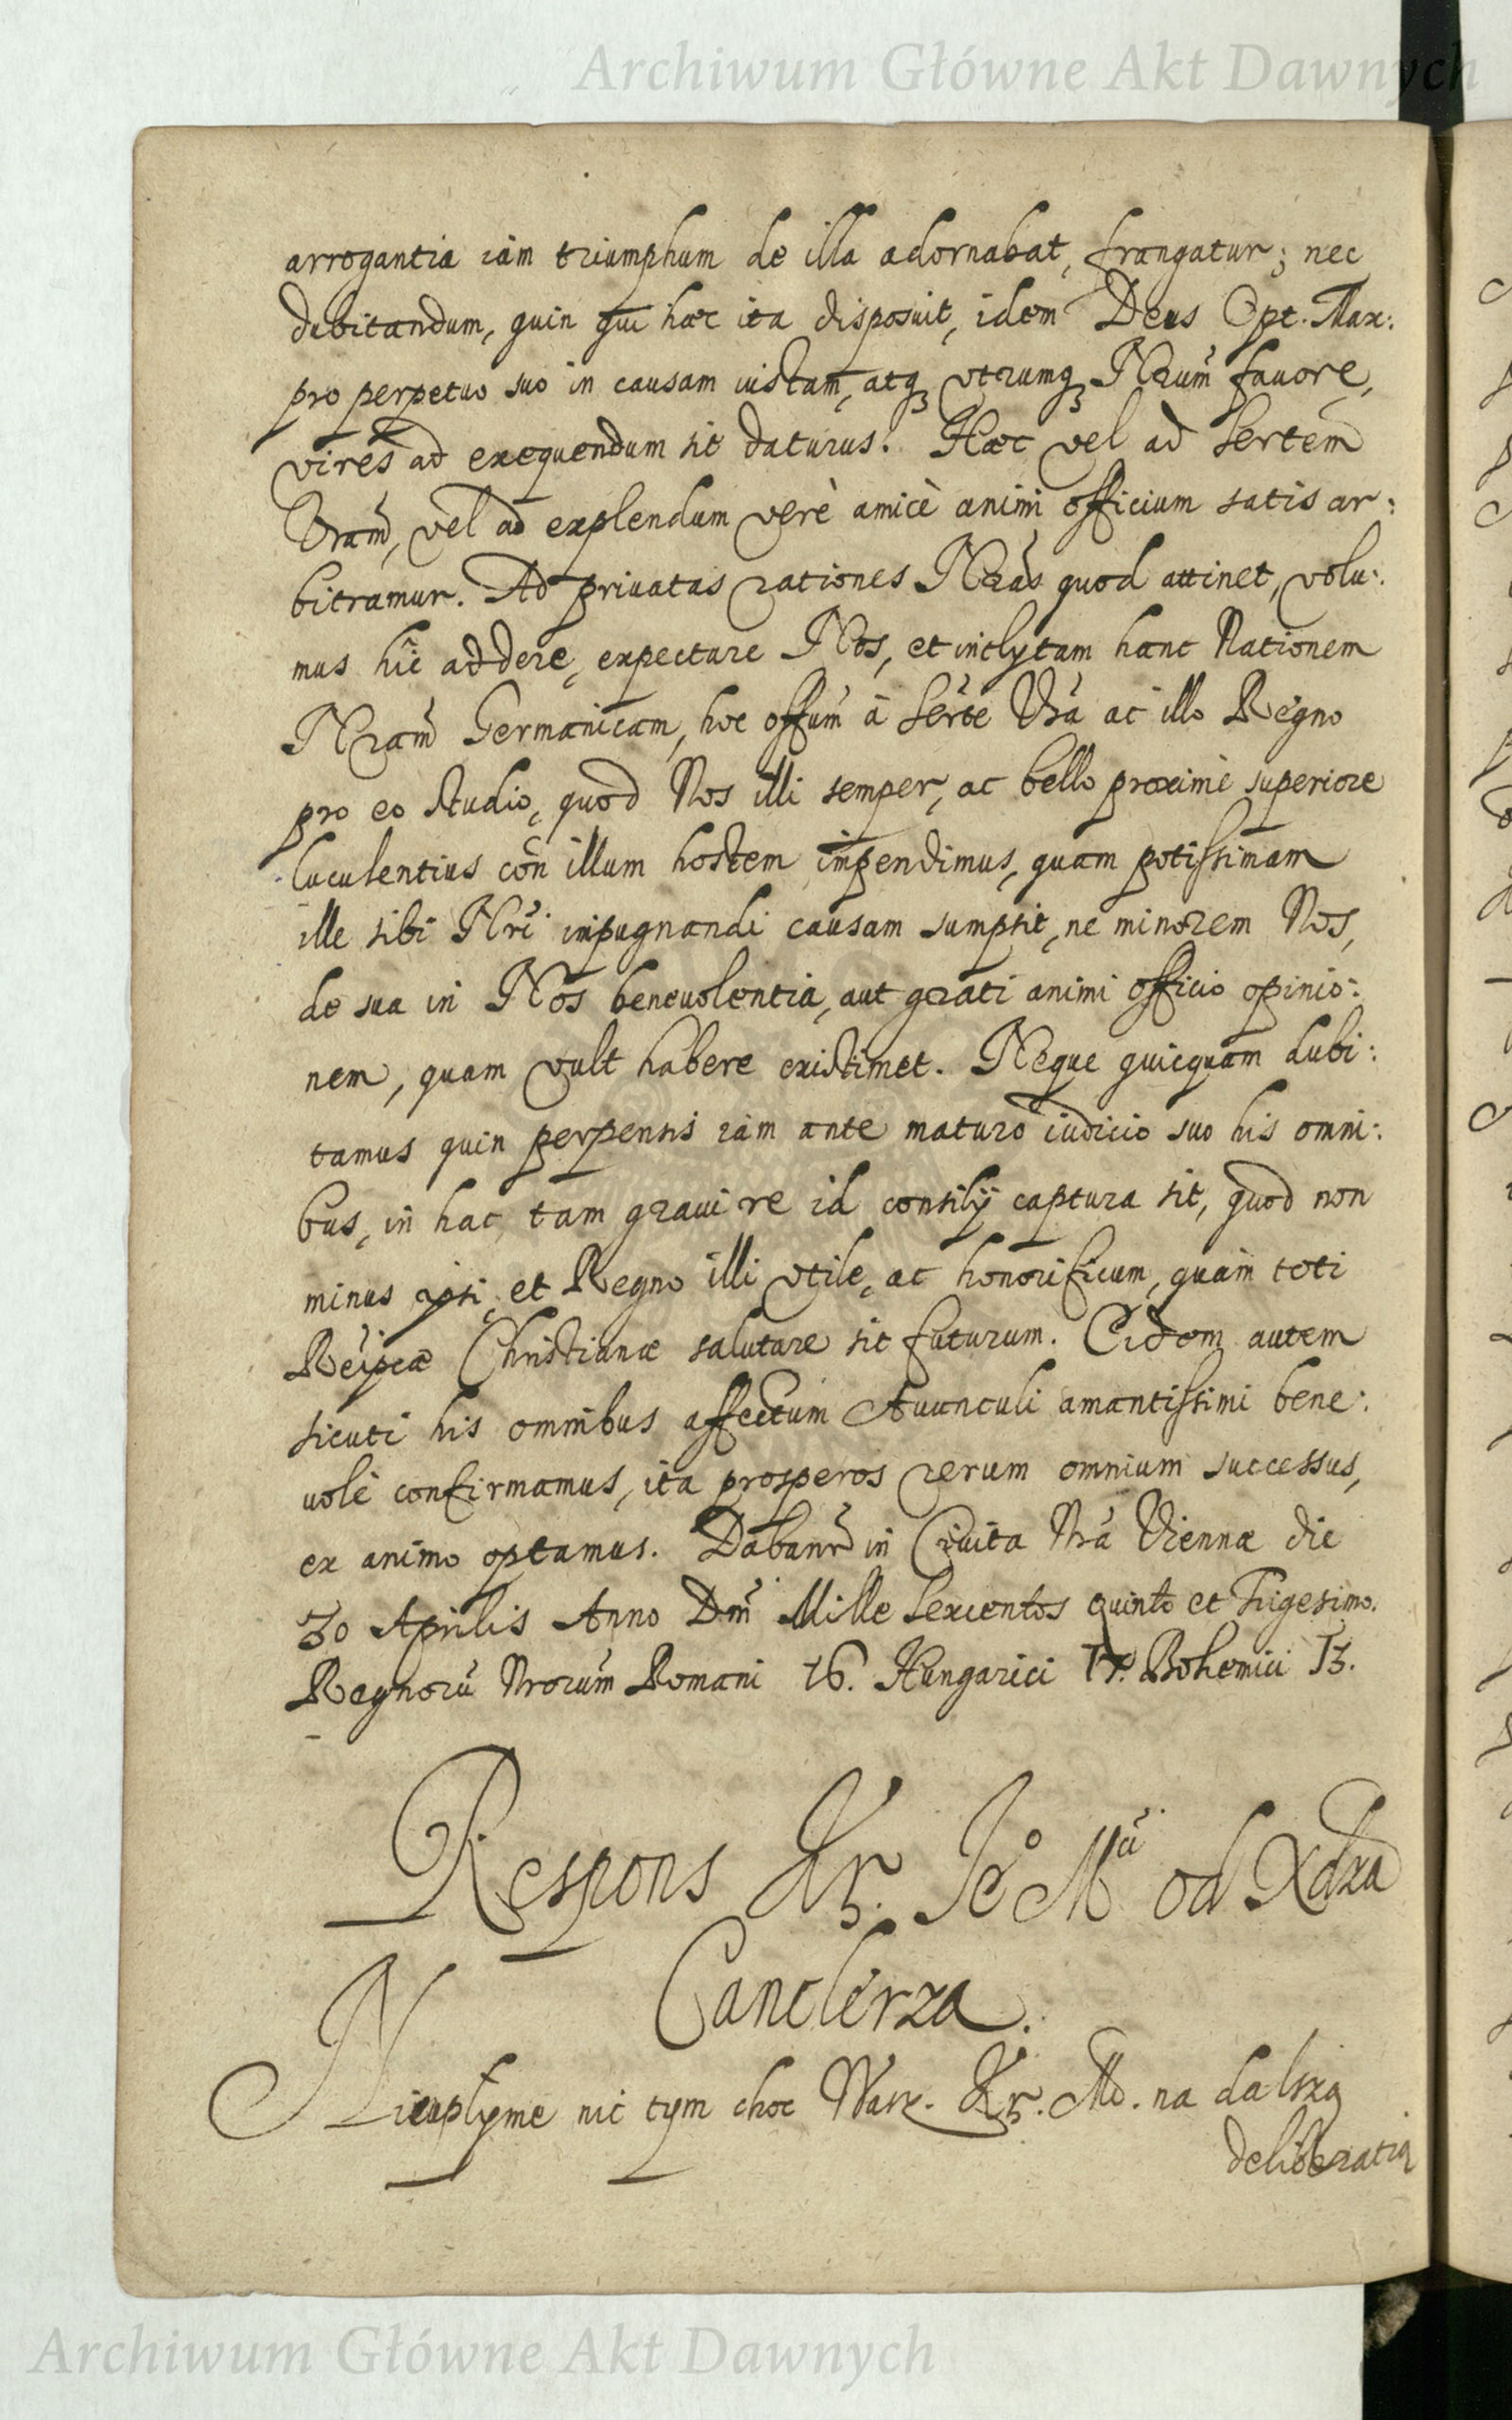 Archiwum Główne Akt Dawnych
arrogantia iàm triumphum de illa adornabat, frangatur; nec
dubitandum, quin qui hæc ita disposuit, idem Deus Opt. Max:
pro perpetuo suo in causam iustam, atq3 utrumq3 Nrum̃ fauore,
vires ad exequendum sit daturus. Hæc vel ad Sertem̃
Vram̃, vel ad explendum verè amicè animi officium satis ar:
bitramur. Ad priuatas rationes Nrãs quod attinet, volu:
mus hîc addere, expectare Nos, et inclytam hanc Nationem
Nram̃ Germanicam, hoc offum̃ à Serte Vrã ac illo Regno
pro eo studio, quod Nos illi semper, ac bello proximè superiore
luculentius con̄ illum hostem impendimus, quam potissimam
ille sibi Nrĩ impugnandi causam sumpsit, ne minorem Nos,
de sua in Nos beneuolentia, aut grati animi officio opinio:
nem, quam vult habere existimet. Neque quicquam dubi:
tamus quin perpensis iàm ante maturo iudicio suo his omni:
bus, in hac tam graui re id consilij captura sit, quod non
minus ipsi, et Regno illi vtile, ac honorificum, quàm toti
Reipcæ Christianæ salutare sit futurum. Eidem autem
sicuti his omnibus affectum Auunculi amantissimi bene:
uolè confirmamus, ita prosperos rerum omnium successus,
ex animo optamus. Dabanr̃ in Ciuita Nrã Viennæ die
30 Aprilis Anno Dm̃ Mille Sexcentos quinto et Trigesimo.
Regnorũ Nrorum̃ Romani 16. Hungarici 17. Bohemici 13.
Respons Kr. Je° Mci od Xdza
Canclerza.
Nieupłyme nic tym choc Wasz. Kr. Mć. na dalszą
deliberatią
Archiwum Główne Akt Dawnych